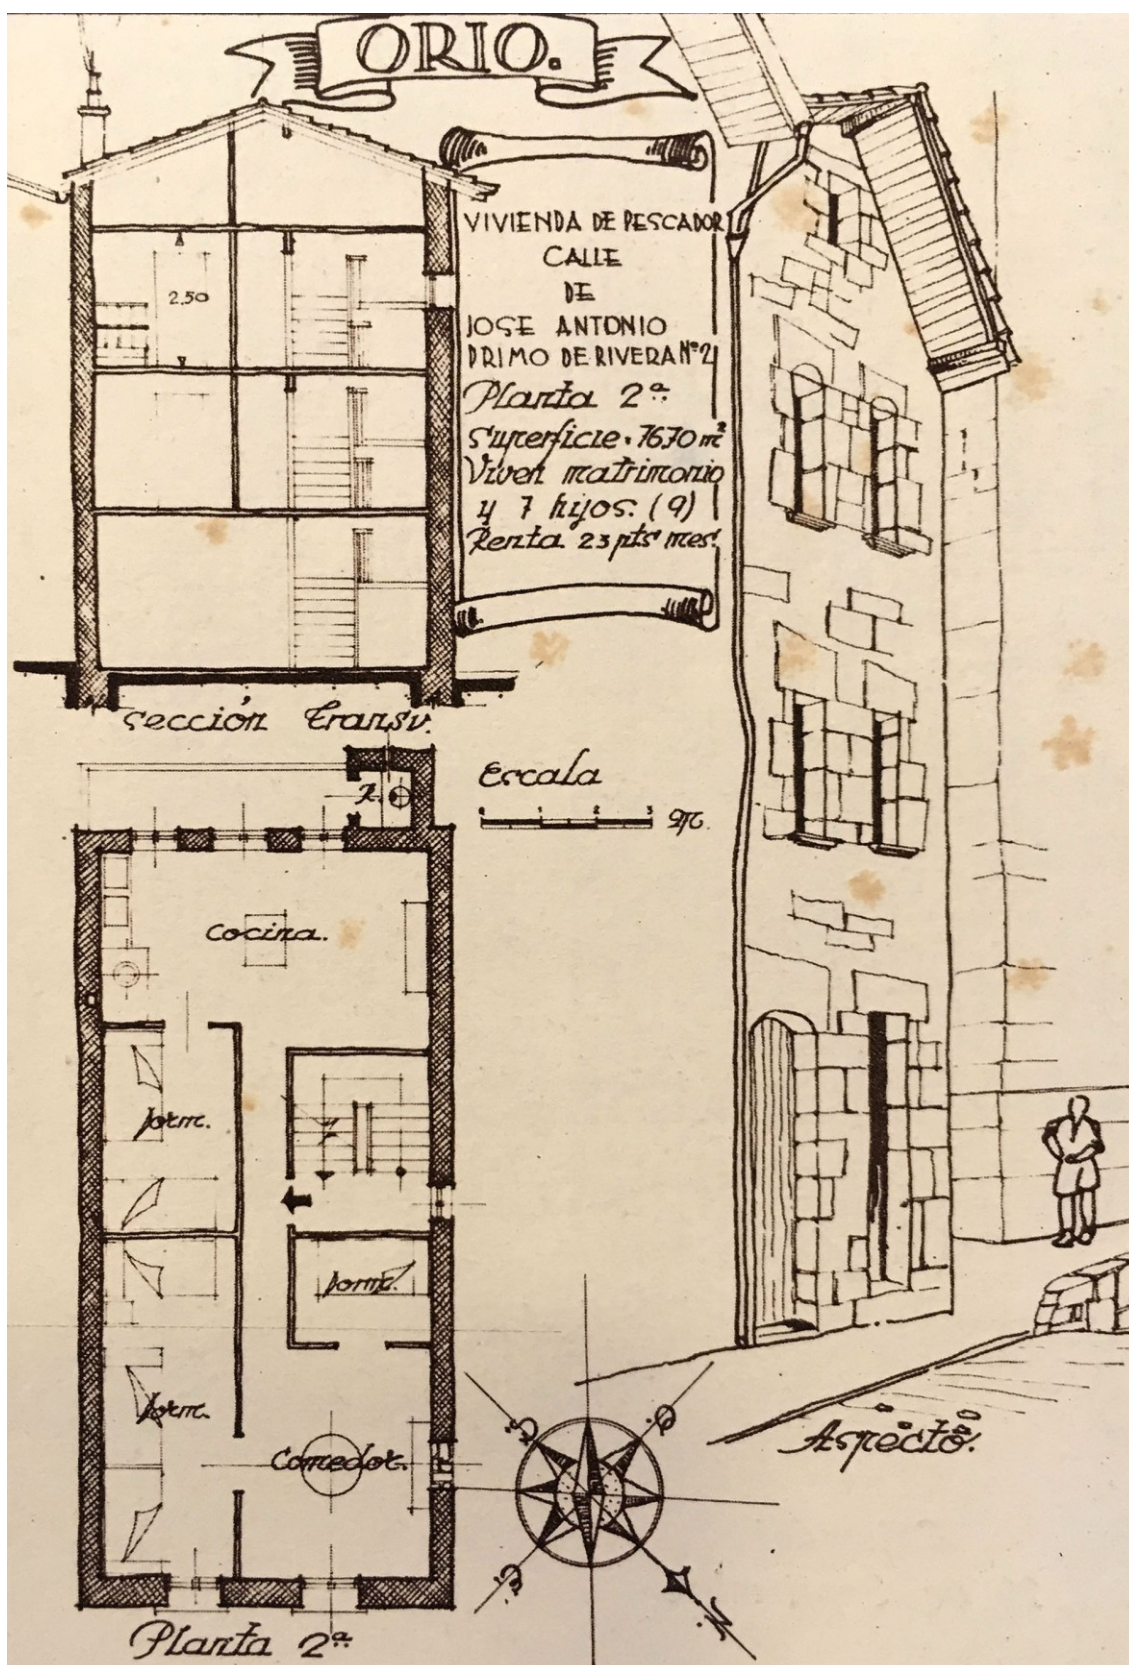 ORIO.
VIVIENDA DE PESCADOR
CALLE
DE
JOSE ANTONIO
PRIMO DE RIVERA Nº 2
Planta 2ª
Superficie · 76,70 m²
Viven matrimonio
y 7 hijos. (9)
Renta 23 pts mes.
2,50
Sección Transv.
Escala
0 1 2 3 M.
R.
Cocina.
Dorm.
Dorm.
Dorm.
Comedor.
Planta 2ª
S.
O.
E.
N.
Aspecto.